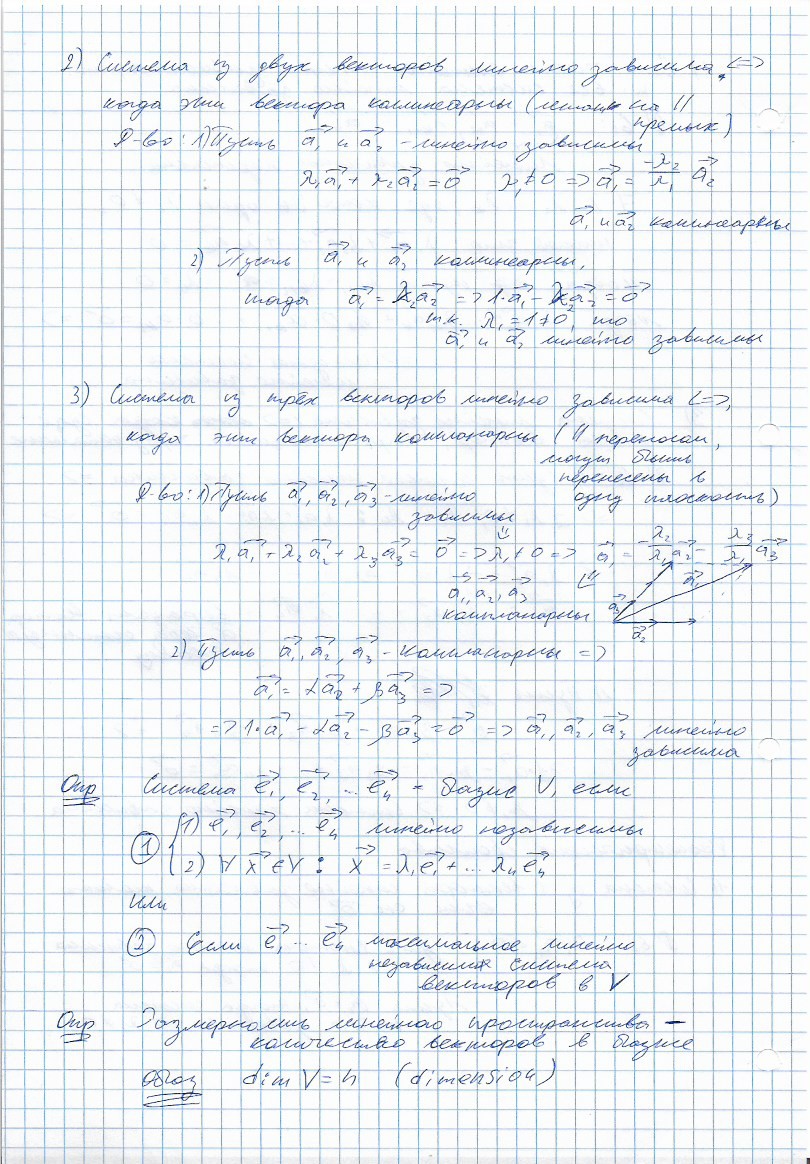 2) Система из двух векторов линейно зависима, <=>
когда эти вектора коллинеарны (лежат на ||
прямых)
Д-во: 1) Пусть a₁⃗ и a₂⃗ - линейно зависимы
λ₁a₁⃗ + λ₂a₂⃗ = 0⃗ λ₁ ≠ 0 => a₁⃗ = -λ₂/λ₁ a₂⃗
a₁⃗ и a₂⃗ коллинеарны
2) Пусть a₁⃗ и a₂⃗ коллинеарны,
тогда a₁⃗ = λ₂a₂⃗ => 1·a₁⃗ - λ₂a₂⃗ = 0⃗
т.к. λ₁ = 1 ≠ 0, то
a₁⃗ и a₂⃗ линейно зависимы
3) Система из трёх векторов линейно зависима <=>,
когда эти векторы компланарны (|| переносом,
могут быть
перенесены в
одну плоскость)
Д-во: 1) Пусть a₁⃗, a₂⃗, a₃⃗ - линейно
зависимы
λ₁a₁⃗ + λ₂a₂⃗ + λ₃a₃⃗ = 0⃗ => λ₁ ≠ 0 => a₁⃗ = -λ₂/λ₁ a₂⃗ - λ₃/λ₁ a₃⃗
a₁⃗, a₂⃗, a₃⃗
компланарны
a₃⃗ a₁⃗
a₂⃗
2) Пусть a₁⃗, a₂⃗, a₃⃗ - компланарны =>
a₁⃗ = αa₂⃗ + βa₃⃗ =>
=> 1·a₁⃗ - αa₂⃗ - βa₃⃗ = 0⃗ => a₁⃗, a₂⃗, a₃⃗ линейно
зависима
Опр Система e₁⃗, e₂⃗, ... eₙ⃗ - базис V, если
① { 1) e₁⃗, e₂⃗, ... eₙ⃗ линейно независимы
2) ∀ x⃗ ∈ V : x⃗ = λ₁e₁⃗ + ... λₙeₙ⃗
Или
② Если e₁⃗ ... eₙ⃗ максимальное линейно
независимая система
векторов в V
Опр Размерность линейного пространства -
количество векторов в базисе
Обоз dim V = n (dimension)